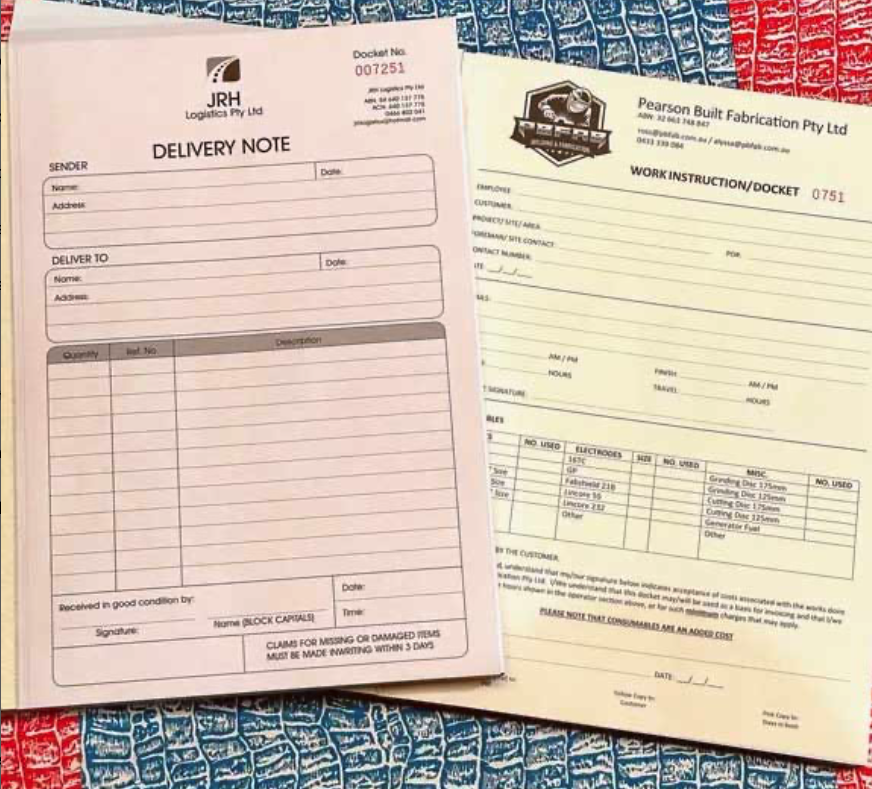 Docket No.
007251
JRH
Logistics Pty Ltd
JRH Logistics Pty Ltd
DELIVERY NOTE
SENDER
Name:
Date:
Address:
DELIVER TO
Name:
Date:
Address:
Quantity
Ref. No
Description
Received in good condition by:
Date:
Signature:
Name (BLOCK CAPITALS)
Time:
CLAIMS FOR MISSING OR DAMAGED ITEMS
MUST BE MADE INWRITING WITHIN 3 DAYS
BUILDING & FABRICATION
Pearson Built Fabrication Pty Ltd
ABN: 32 661 748 847
ross@pbfab.com.au / alyssa@pbfab.com.au
0433 339 084
WORK INSTRUCTION/DOCKET 0751
EMPLOYEE:
CUSTOMER:
PROJECT/ SITE/ AREA:
FOREMAN/ SITE CONTACT:
PO#:
CONTACT NUMBER:
AM / PM
FINISH:
AM / PM
HOURS
TRAVEL
HOURS
SIGNATURE:
NO. USED ELECTRODES SIZE NO. USED MISC. NO. USED
16TC Grinding Disc 175mm
GP Grinding Disc 125mm
Size Fabshield 21B Cutting Disc 175mm
Size Lincore 55 Cutting Disc 125mm
Size Lincore 232 Generator Fuel
Other Other
BY THE CUSTOMER
understand that my/our signature below indicates acceptance of costs associated with the works done
Pty Ltd. I/We understand that this docket may/will be used as a basis for invoicing and that I/we
hours shown in the operator section above, or for such minimum charges that may apply.
PLEASE NOTE THAT CONSUMABLES ARE AN ADDED COST
DATE: __/__/__
Yellow Copy to:
Customer
Pink Copy to:
Stays in book